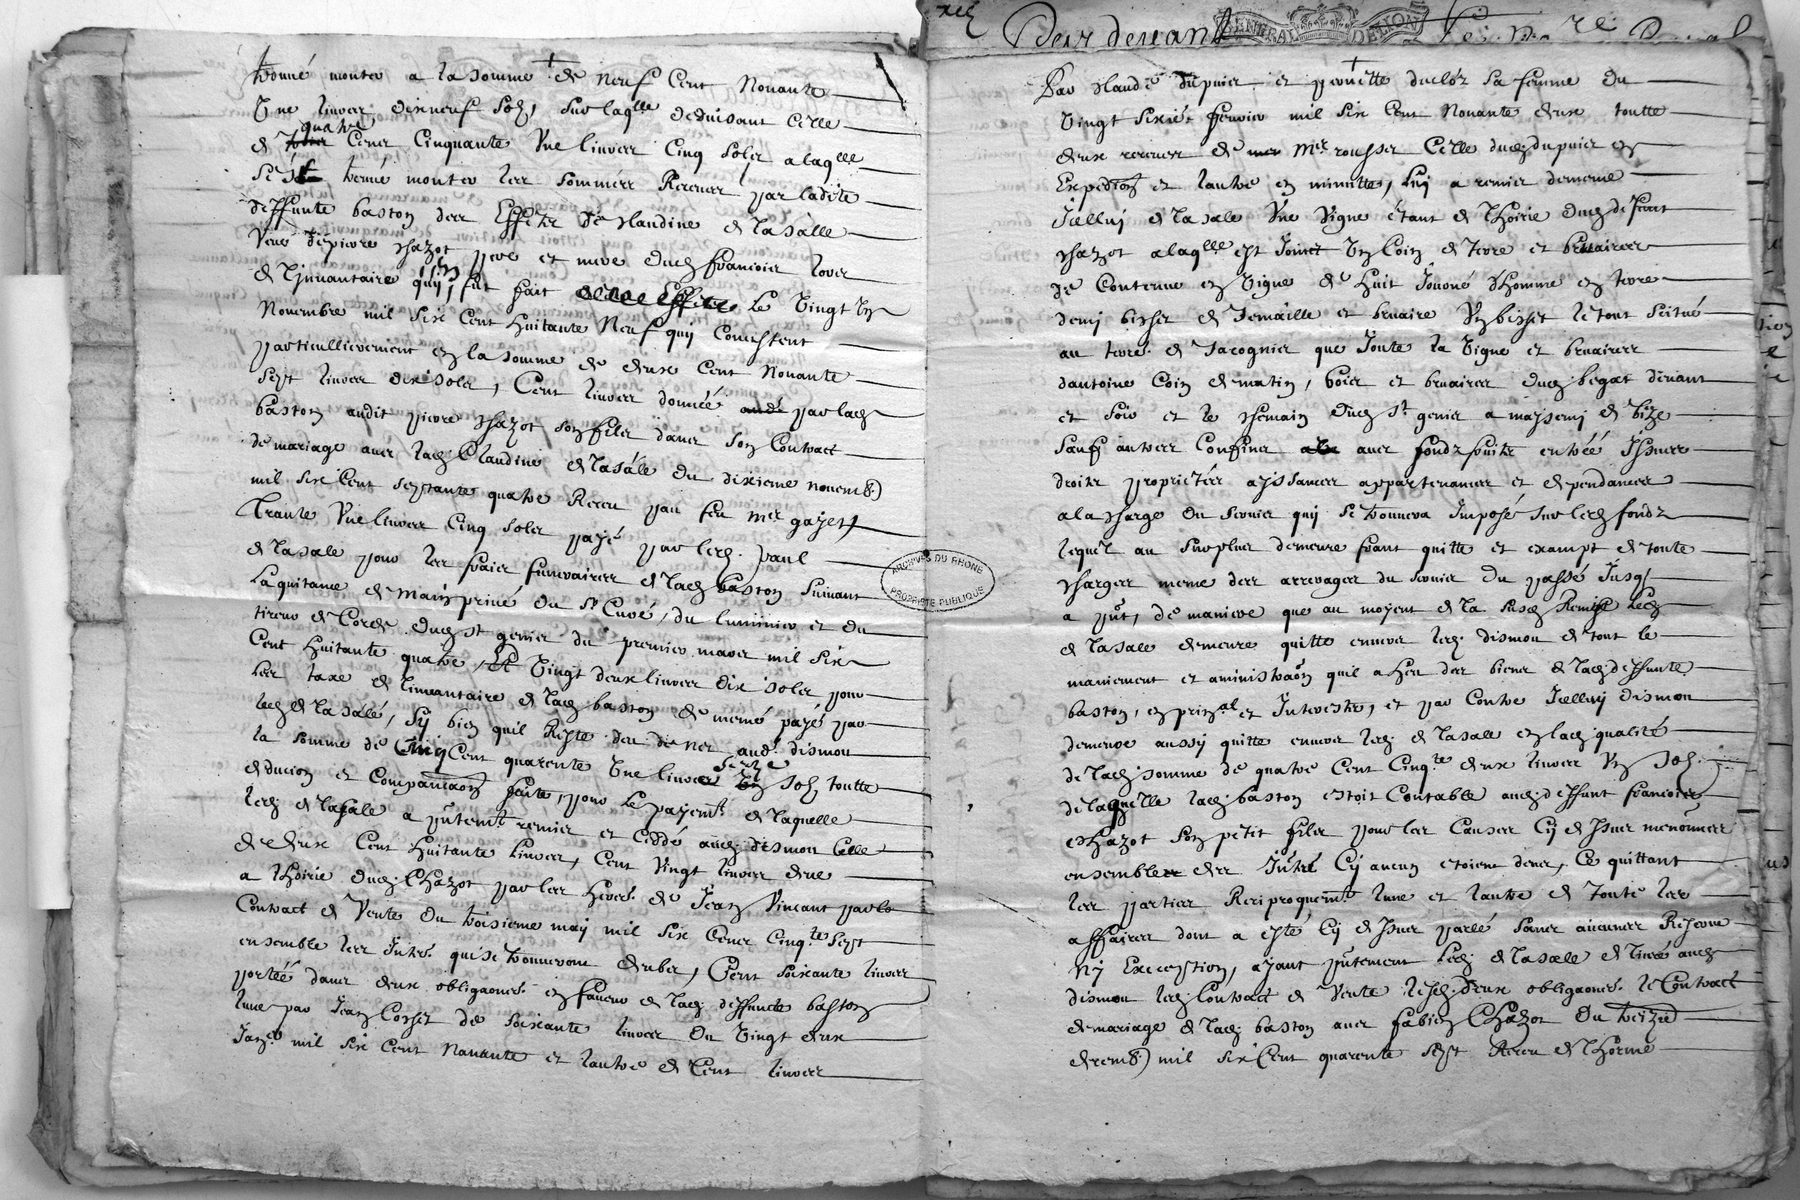 trouvé monter a la somme de neuf cent nonante
Une livres dixneuf solz, sur laqlle deduisant celle
de quatre cens cinquante Une livres cinq solz a laqlle
se st trouvé monter les sommes Receues par ladite
deffunte baston des Effetz de Claudine de la salle
veuve de pierre Chazot pere et mere dud francois lors
de l'Jnvantaire quy en fut fait le vingt un
Novembre mil six cent huitante neuf quy consistent
particullierement en la somme de deux cent Nonante
sept livres dix solz, Cent livres donnée par lad
baston audit pierre Chazot son filz dans son Contract
de mariage avec lad Claudine de lasâle du dixieme novemb
mil six cent septante quatre Receu par feu mre gayet
Trante Une livres cinq solz payé par led. paul
de la sale pour les fraics funerairer de lad baston suivant
La quitance de main privé du sr Curé, du luminier et du
tireur de Corde dud st genier du premier mars mil six
cent huitante quatre, et vingt deux livres dix solz pour
les taxe de linvantaire de lad baston de meme payés par
led de la sale, sy bien quil Reste deu de net aud. dismon
la somme de Cinq Cent quarente Une livres seize solz toutte
deduction et Compansaon faite, pour le payemt de laquelle
led de la sale a pntemt remier et ceddé aud dismon Celle
de deux Cent huitante livres, Cent vingt livres deue
a lhoirie dud. Chazot par les hers de Jean Vincant par le
Contract de Vente du troisieme may mil six Cens cinqte sept
ensemble les Jntrs quise trouveront deubz, Cent soixante livres
portée dans deux obligaons en faveur de lad. deffuncte baston
lune par Jean Corset de soixante livres du vingt deux
Janer mil six cent nonante et lautre de Cent livres
Par devant
GENERAL DE LION
Par Claude dupuier et pernette duclòz sa femme du
vingt sixie fevrier mil six Cent Nonante deux toutte
deux receuer de Mre rousset Celle dud dupuier en
Expedion et lautre en minutte, luy a remier de meme
Jcelluy de la sale Une Vigne étant de lhoirie dud defunt
Chazot a laqlle est Joinct Un Coin de terre et bruairer
de Contenue en vigne de huit Journé dhomme en terre
demy bisset de semaille et bruaire Un bisset le tout scitué
au terre de Jacognier que Joute la Vigne et bruairer
dantoine Coin de matin, boier et bruairer dud begat devant
et soir et le chemain dud St genier a maysemy de bize
sauf autres Confins avec fondz fruitz entrée Jssuer
droitz proprietér ayssancer appartenancer et dependancer
a la charge du servier quy se trouvera Jmposé sur lesd fondz
lequel au surplus demeure franc quitte et exampt de toute
charger meme des arreragez du servier du passé Jusq
a pnt, de maniere que au moyent de la susd Remise led
de la sale demeure quitte envers led. dismon de tout le
maniement et aministraon quil a heu des biens de lad. deffunte
baston, en prinal et Jnterestz, et par contre Jcelluy dismon
demeure aussy quitte envers led. de la sale en lad qualité
de lad somme de quatre Cent Cinqte deux livres Un sol
de laquelle lad baston estoit Contable aud. deffunt francois
Chazot son petit filz pour les Causer Cy de ssus menonneez
ensemble des Jntré Cy aucun etoient deuz, Ce quittant
les partier Reciproquemt lune et lautre de toute les
affaires dont a esté Cy de ssus parlé sans aucuner Reserve
Ny Exeception, ayant pntement led. de lasale de livré aud
dismon led Contract de Vente lesd. deux obligaons le Contract
de mariage de lad baston avec fabien Chazot du treizie
decemb mil six Cent quarente sept Receu de lhorme
ARCHIVES DU RHONE
PROPRIETE PUBLIQUE